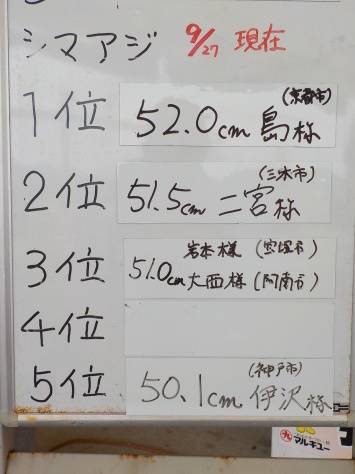 シマアジ 9/27 現在
1位 52.0cm 島様 (京都市)
2位 51.5cm 二宮様 (三木市)
3位 51.0cm 岩本様 (宝塚市)
大西様 (阿南市)
4位
5位 50.1cm 伊沢様 (神戸市)
マルキユー